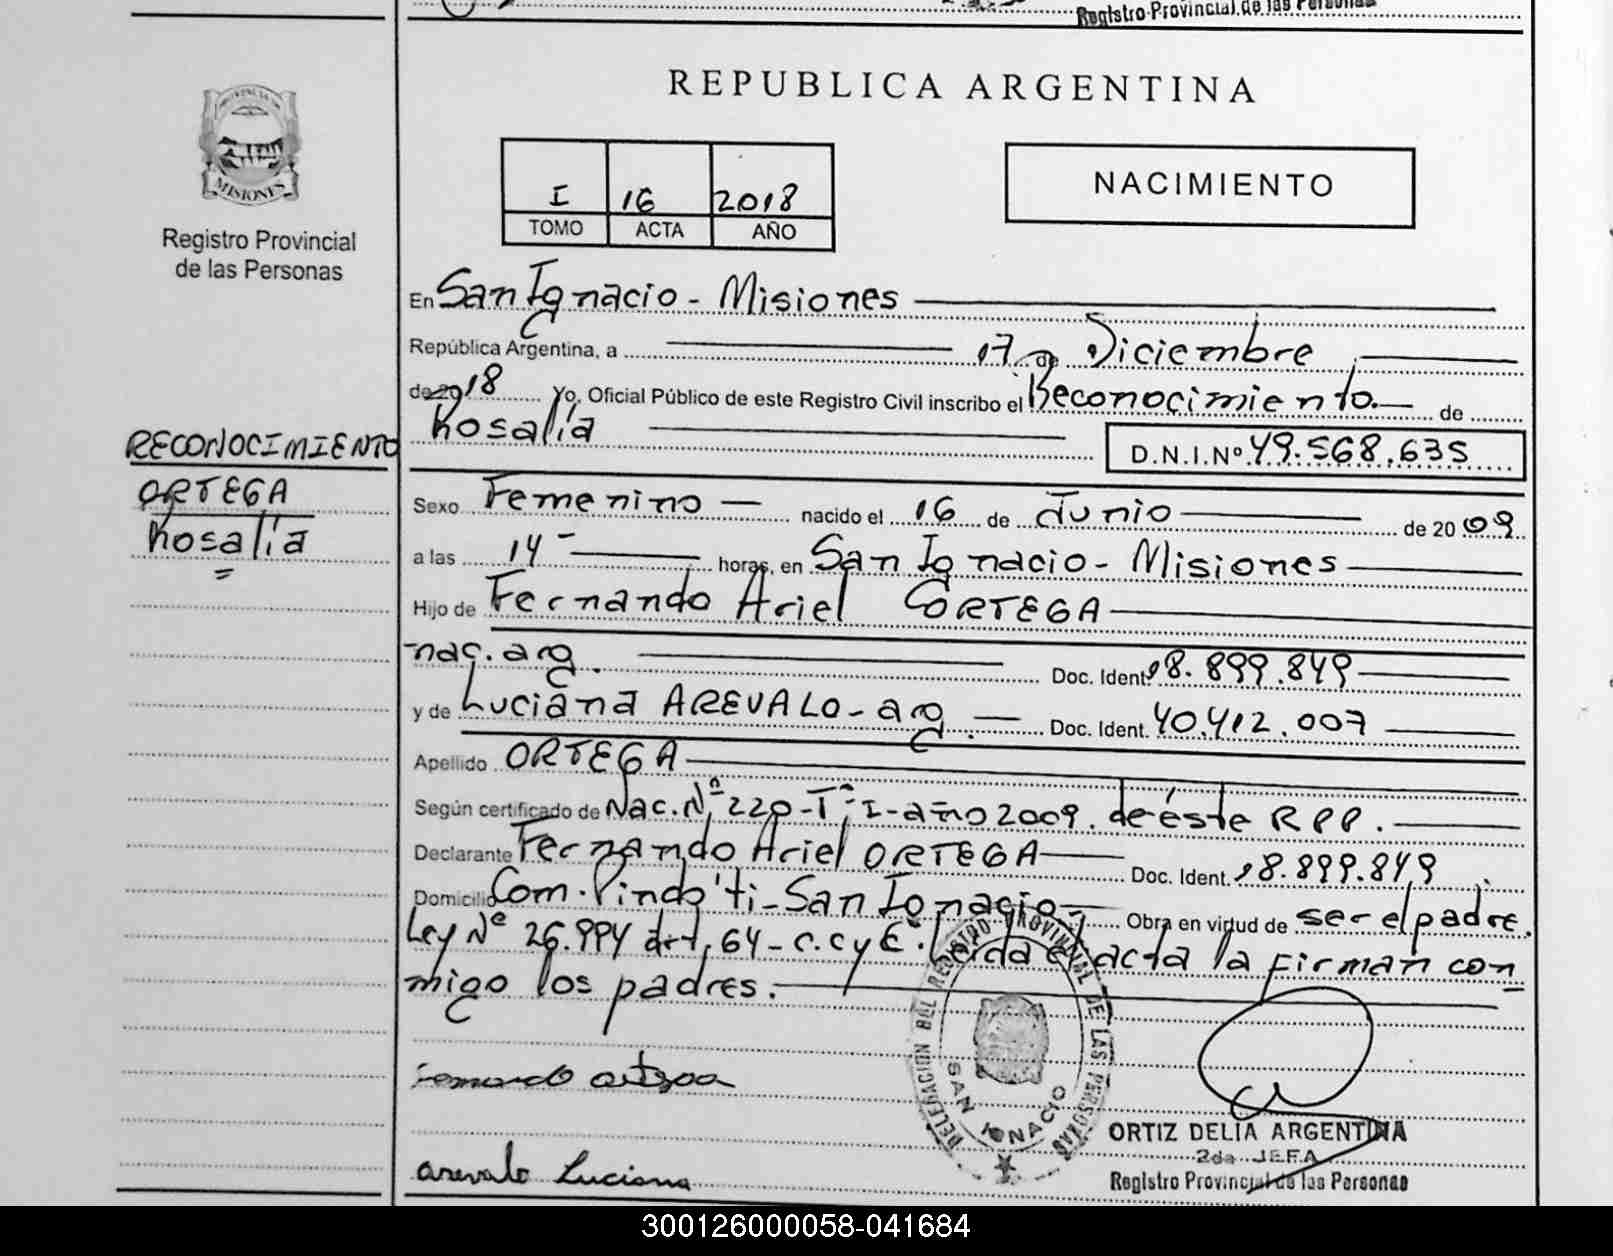 Registro Provincial de las Personas
REPUBLICA ARGENTINA
PROVINCIA DE
MISIONES
Registro Provincial
de las Personas
I 16 2018
TOMO ACTA AÑO
NACIMIENTO
En San Ignacio - Misiones
República Argentina, a 17 de Diciembre
de 2018 Yo, Oficial Público de este Registro Civil inscribo el Reconocimiento.- de
Rosalía D.N.I.Nº 49.568.635
RECONOCIMIENTO
ORTEGA
Rosalía
Sexo Femenino nacido el 16 de Junio de 2009
a las 14- horas, en San Ignacio - Misiones
Hijo de Fernando Ariel ORTEGA
nac. arg. Doc. Ident. 18.899.849
y de Luciana AREVALO - arg. Doc. Ident. 40.412.007
Apellido ORTEGA
Según certificado de Nac. Nº 220 - Tº I - año 2009. de éste RPP.
Declarante Fernando Ariel ORTEGA Doc. Ident. 18.899.849
Domicilio Com. Pindo'ti - San Ignacio - Obra en virtud de ser el padre.
Ley Nº 26.994 art. 64 - C.C y C. Leída el acta la firman con
migo los padres.
DELEGACION DEL REGISTRO PROVINCIAL DE LAS PERSONAS
SAN IGNACIO
Fernando ortega
ORTIZ DELIA ARGENTINA
2da. JEFA
arevalo Luciana
Registro Provincial de las Personas
300126000058-041684